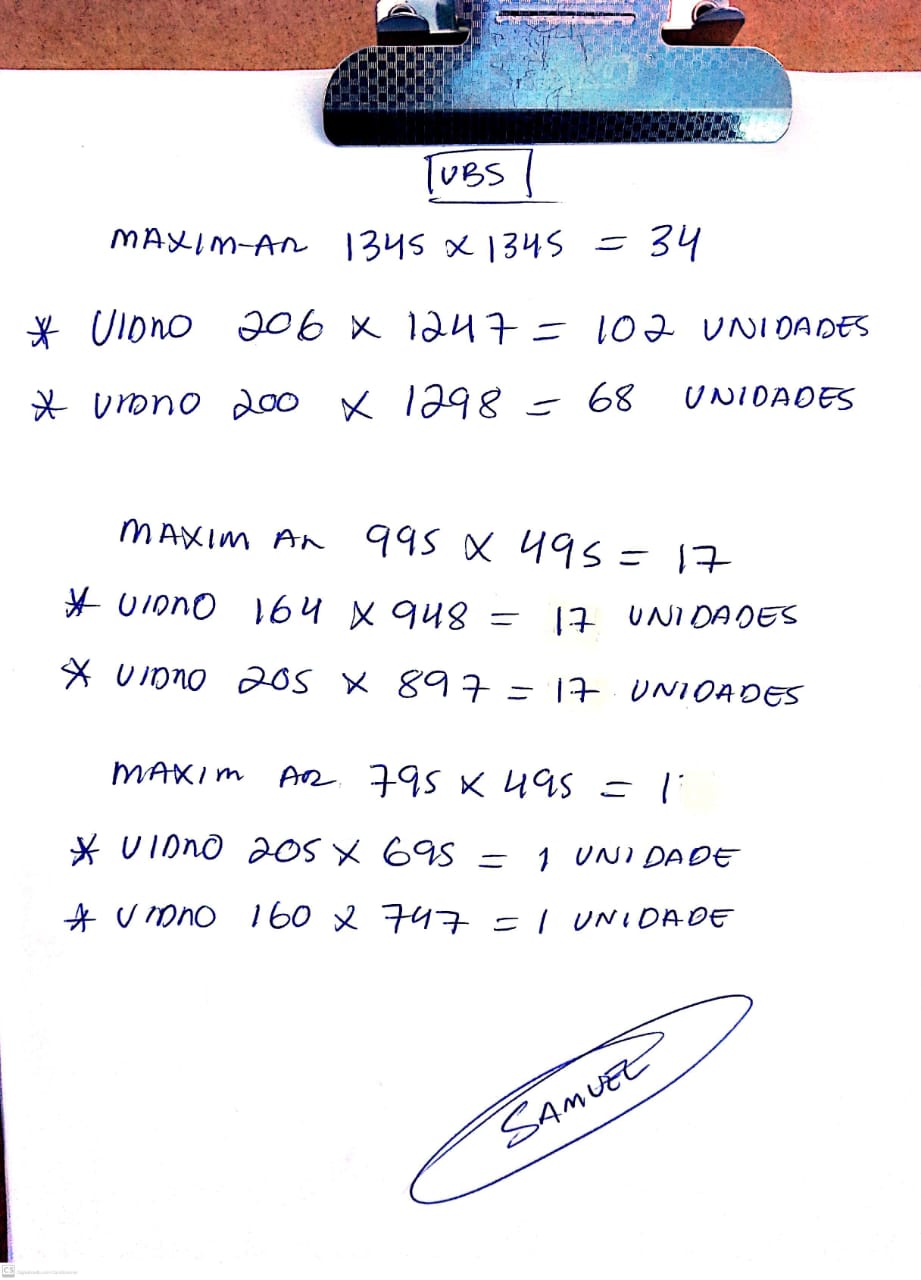 UBS
MAXIM-AR 1345 x 1345 = 34
* VIDRO 206 x 1247 = 102 UNIDADES
* VIDRO 200 x 1298 = 68 UNIDADES
MAXIM AR 995 x 495 = 17
* VIDRO 164 x 948 = 17 UNIDADES
* VIDRO 205 x 897 = 17 UNIDADES
MAXIM AR 795 x 495 = 1
* VIDRO 205 x 695 = 1 UNIDADE
* VIDRO 160 x 747 = 1 UNIDADE
SAMUEL
CS